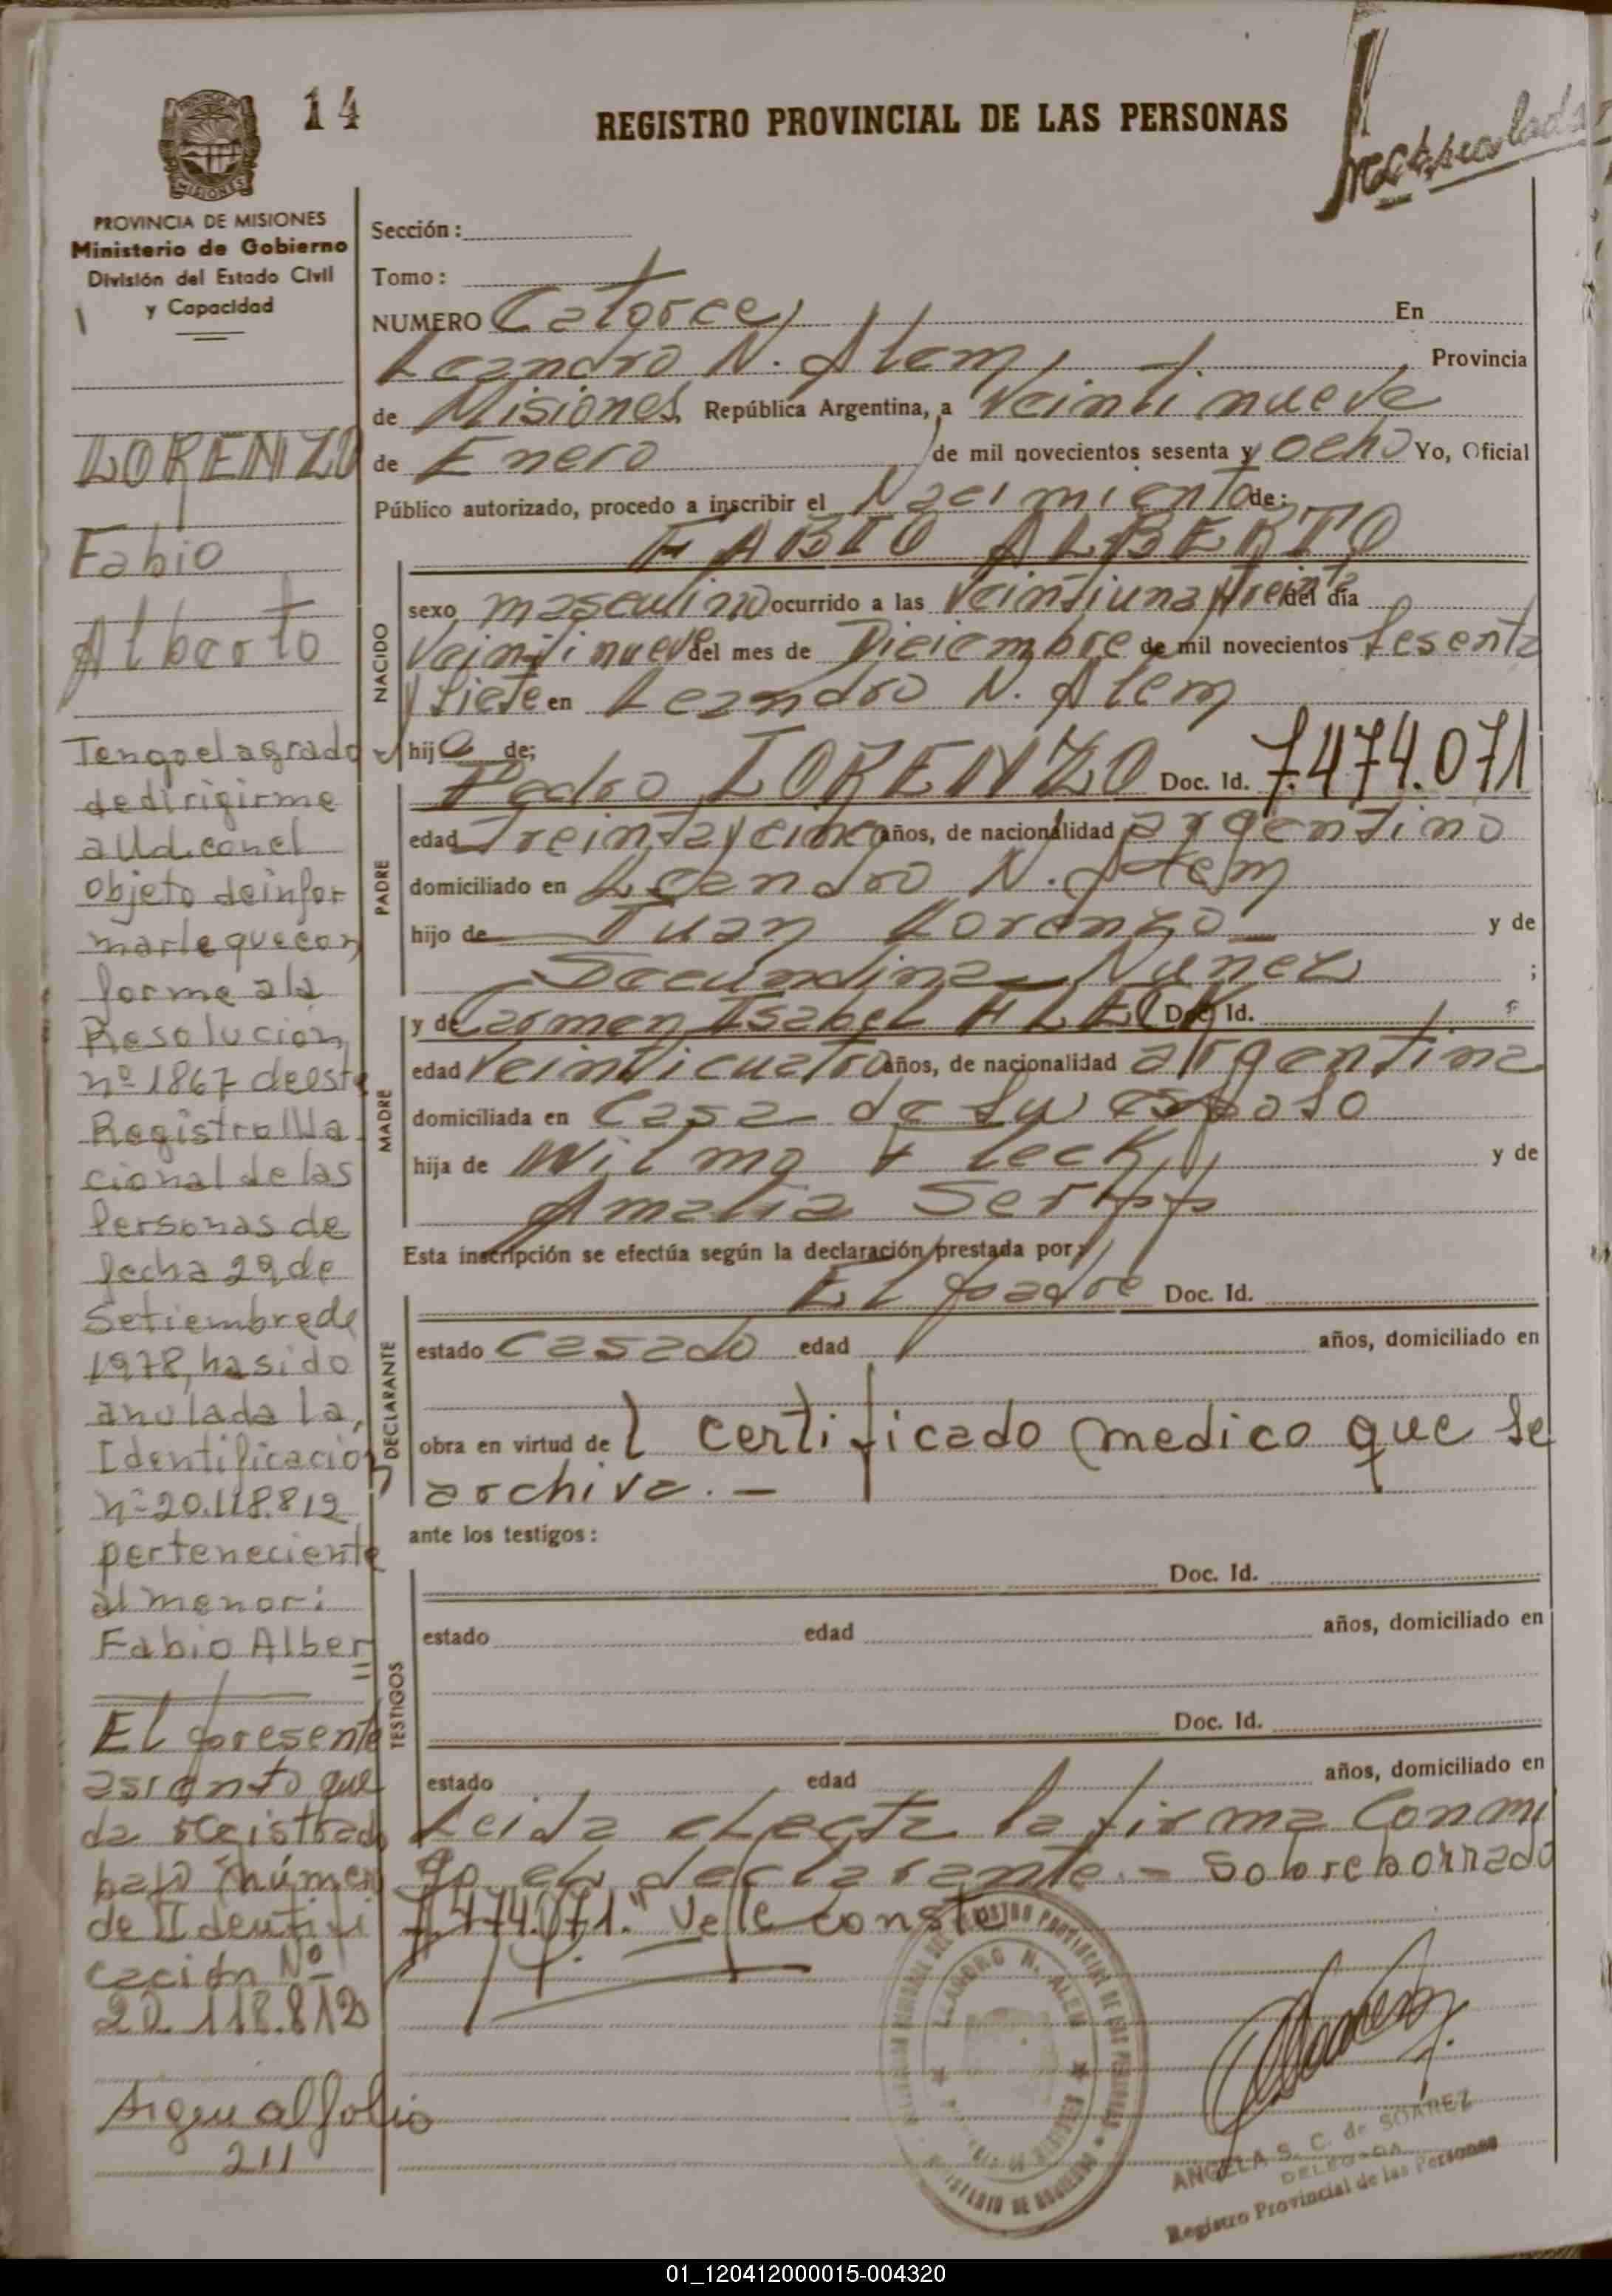 14
REGISTRO PROVINCIAL DE LAS PERSONAS
PROVINCIA DE
MISIONES
PROVINCIA DE MISIONES
Ministerio de Gobierno
División del Estado Civil
y Capacidad
LORENZO
Fabio
Alberto
Tengo el agrado
de dirigirme
a Ud. con el
objeto de infor
marle que con
forme a la
Resolución
nº 1867 de este
Registro Na
cional de las
Personas de
fecha 29 de
Setiembre de
1978, ha sido
anulada la,
Identificación
nº 20.118.819
perteneciente
al menor:
Fabio Alber
=
El presente
asiento que
da registrado
bajo númer
de Identifi
cación Nº
20.118.812
Sigue al folio
211
Sección:
Tomo:
NUMERO Catorce En
Leandro N. Alem, Provincia
de Misiones, República Argentina, a Veintinueve
de Enero de mil novecientos sesenta y ocho Yo, Oficial
Público autorizado, procedo a inscribir el Nacimiento de:
FABIO ALBERTO
NACIDO
sexo masculino ocurrido a las Veintiuna y treinta del día
Veintinueve del mes de Diciembre de mil novecientos sesenta
y siete en Leandro N. Alem
hijo de;
PADRE
Pedro LORENZO Doc. Id. 7.474.071
edad Treinta y cinco años, de nacionalidad argentino
domiciliado en Leandro N. Alem
hijo de Juan Lorenzo y de
Secundina Nunez ;
MADRE
y de Carmen Isabel FLECK Doc. Id.
edad Veinticuatro años, de nacionalidad argentina
domiciliada en Casa de su esposo
hija de Wilmo Fleck y de
Amalia
Esta inscripción se efectúa según la declaración prestada por:
DECLARANTE
El padre Doc. Id.
estado casado edad años, domiciliado en
obra en virtud del certificado medico que se
archiva.-
ante los testigos:
TESTIGOS
Doc. Id.
estado edad años, domiciliado en
Doc. Id.
estado edad años, domiciliado en
Leida el acta la firma Conmi
go el declarante.- Sobreborrado
7.474.071." Vale conste
LEANDRO N. ALEM
ANGELA S. C. de SOAREZ
DELEGADA
Registro Provincial de las Personas
01_120412000015-004320